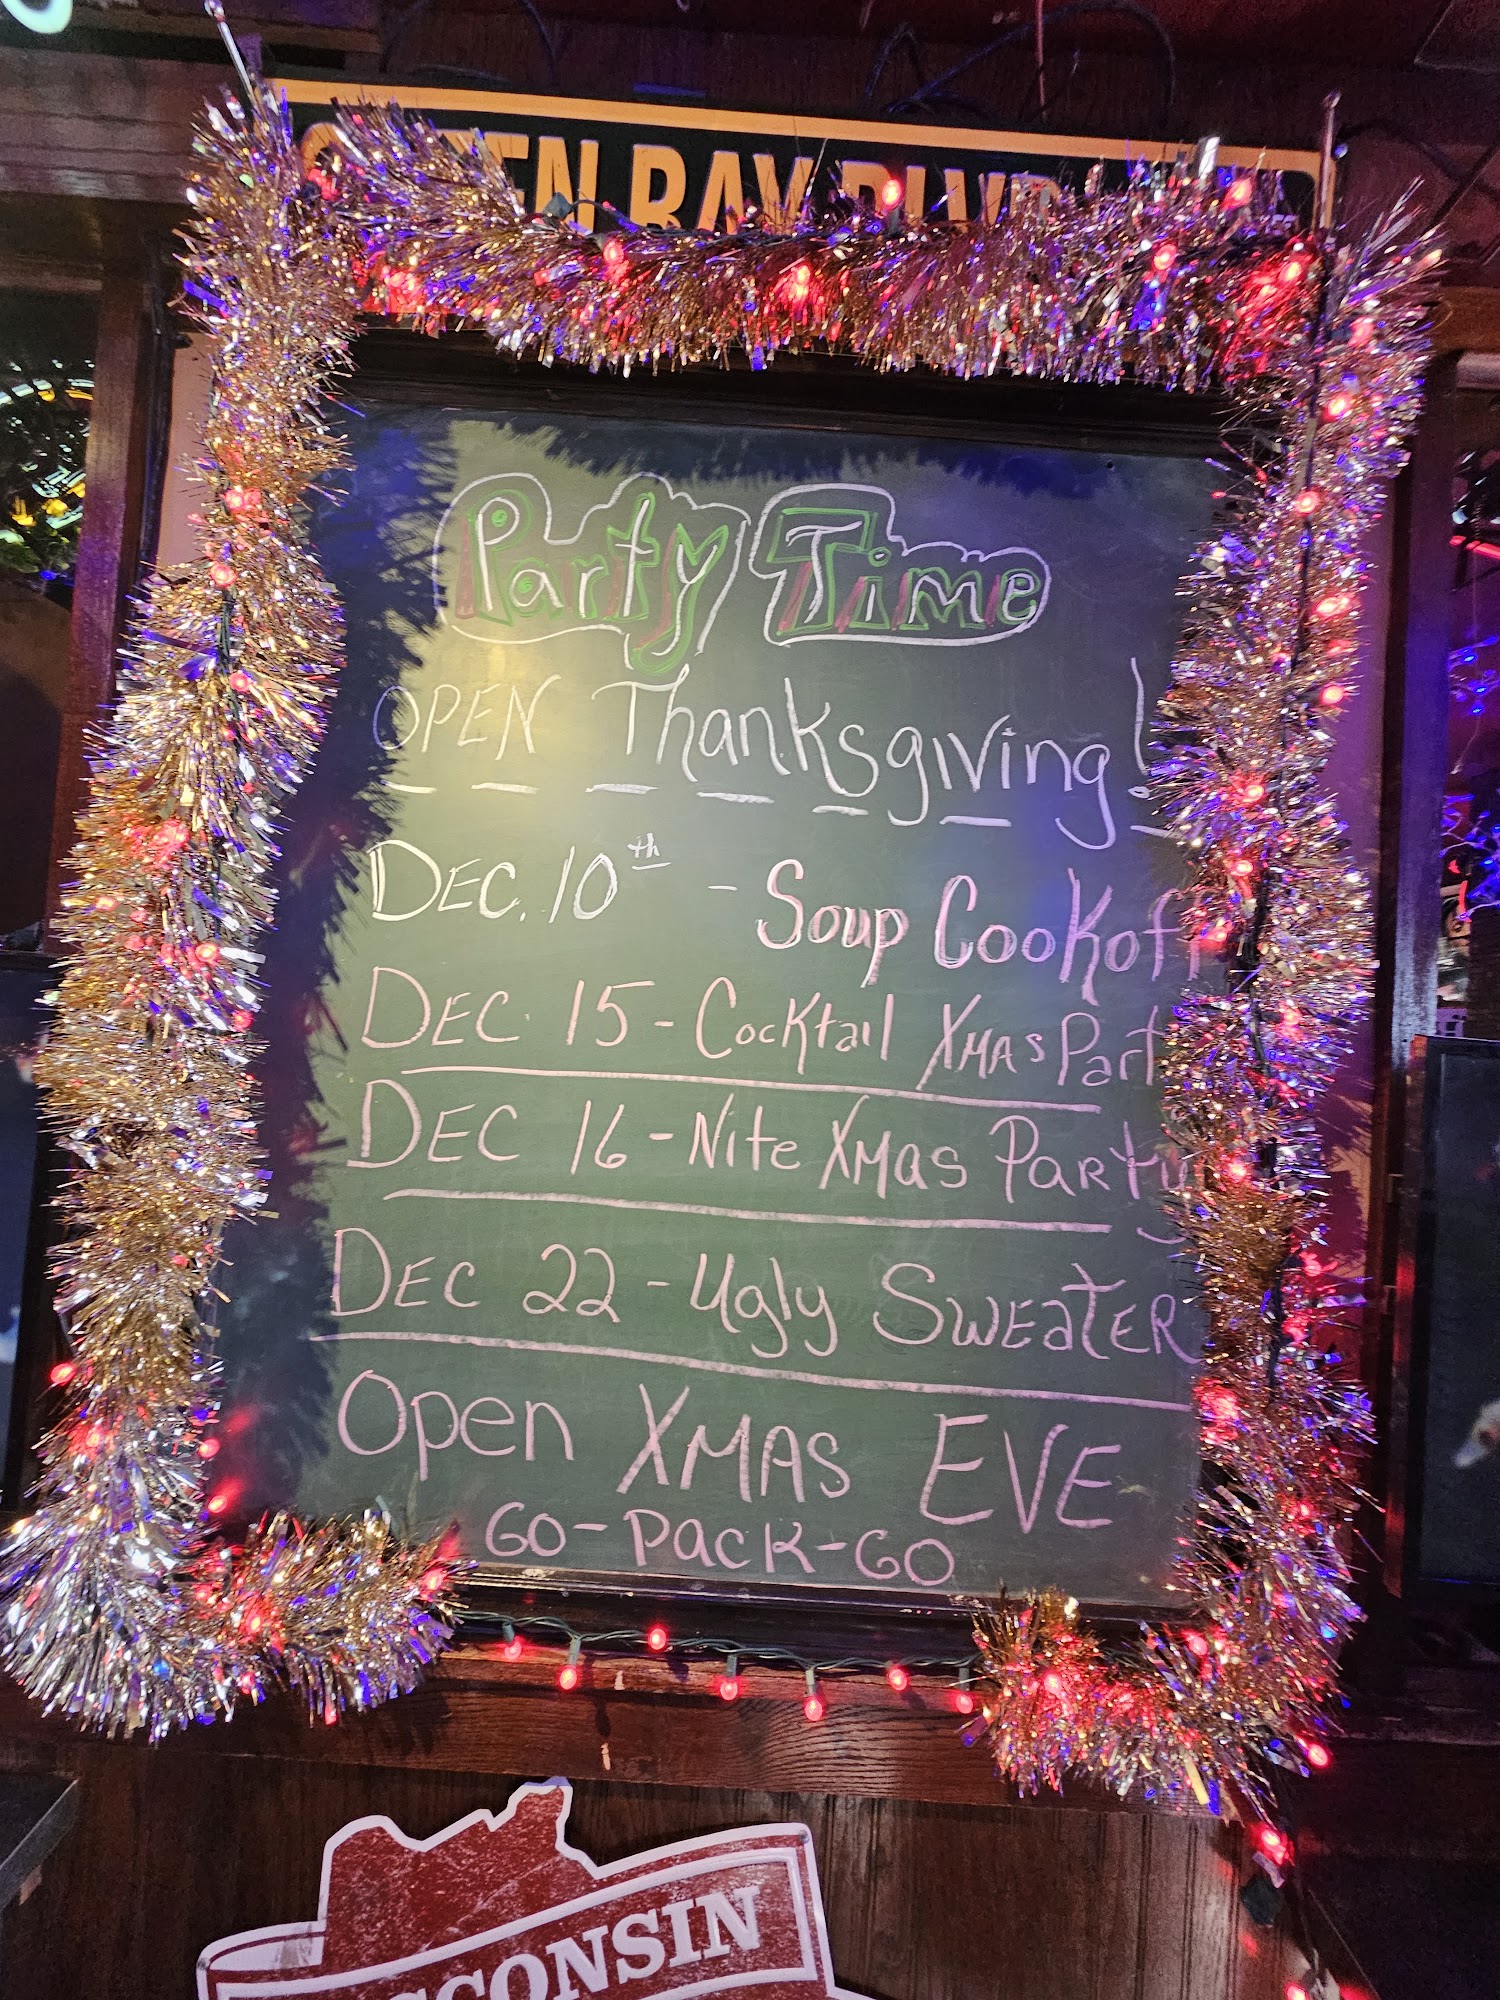 BAY BLVD
Party Time
OPEN Thanksgiving!
DEC. 10th - Soup Cookoff
DEC. 15 - Cocktail XMAS Party
DEC 16 - Nite XMAS PARTY
DEC 22 - Ugly SWEATER
Open XMAS EVE
GO-PACK-GO
WISCONSIN